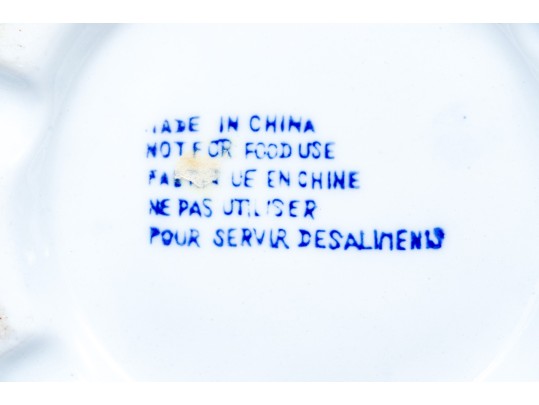 MADE IN CHINA
NOT FOR FOOD USE
FABRIQUE EN CHINE
NE PAS UTILISER
POUR SERVIR DES ALIMENTS